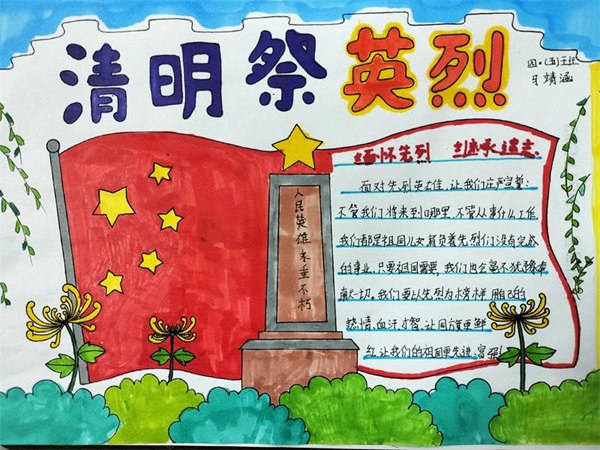 清明祭英烈
四·(五)王玨
靖涵
缅怀先烈 继承遗志
人民英雄永垂不朽
面对先烈英雄,让我们庄严宣誓:
不管我们将来到哪里,不管从事什么工作
我们都是祖国儿女,肩负着先烈们没有完成
的事业,只要祖国需要,我们出会毫不犹豫奉
献一切。我们要以先烈为榜样,用自己的
热情、血汗、才智,让国旗更鲜
红,让我们的祖国更先进、富强!